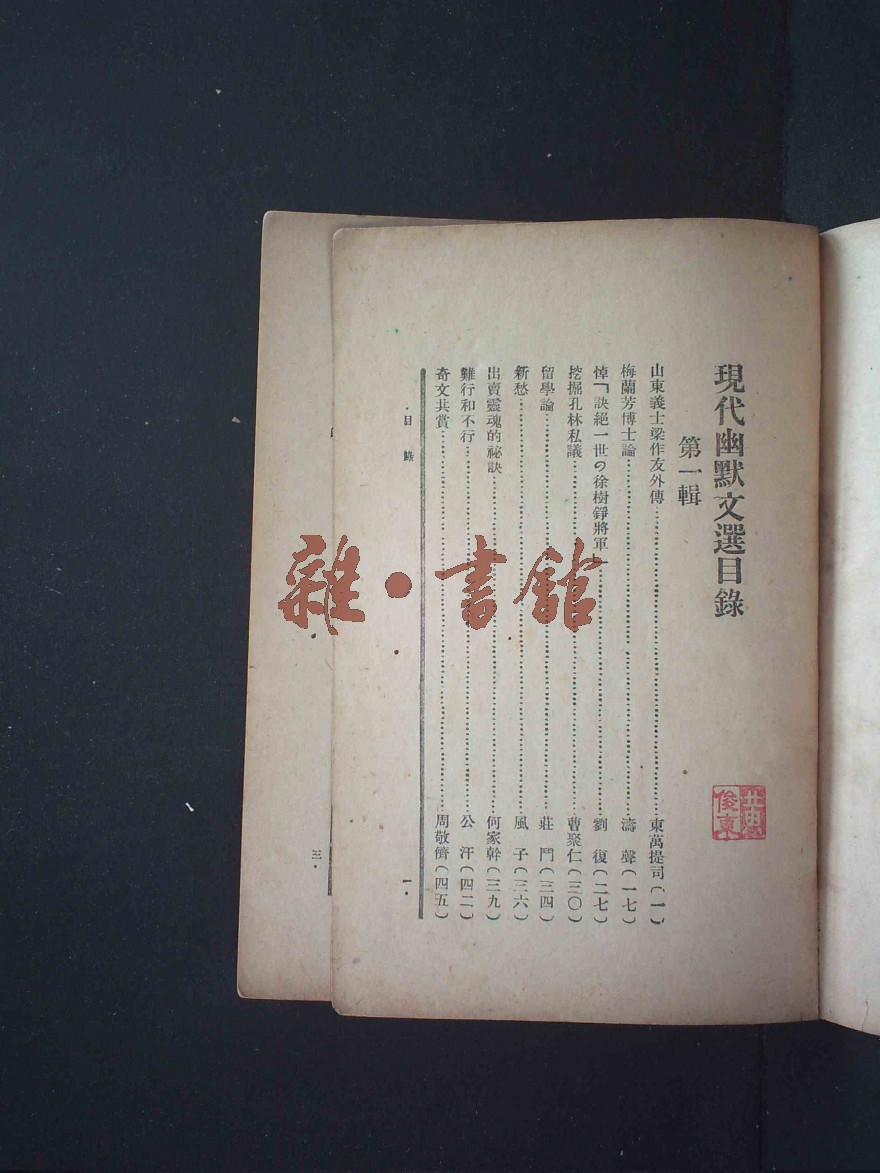 現代幽默文選目錄
第一輯
山東義士梁作友外傳⋯⋯東萬提司(一)
梅蘭芳博士論⋯⋯濤聲(一七)
悼「訣絕一世の徐樹錚將軍」⋯⋯劉復(二七)
挖掘孔林私議⋯⋯曹聚仁(三〇)
留學論⋯⋯莊鬥(三四)
新愁⋯⋯風子(三六)
出賣靈魂的祕訣⋯⋯何家幹(三九)
難行和不行⋯⋯公汗(四二)
奇文共賞⋯⋯周敬儕(四五)
·目錄
一·
三·
雜·書館
俊東